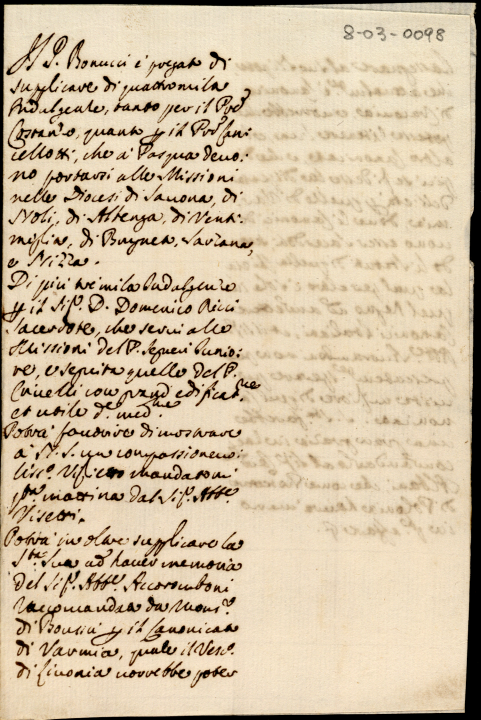 8-03-0098
Il P. Bonucci è pregato di
supplicare di quattromila
Indulgenze, tanto per il Pre
Costanzo, quanto p il Pre Can:
cellotti, che a Pasqua devo:
no portarsi alle Missioni
nelle Diocesi di Savona, di
Noli, di Albenga, di Venti:
miglia, di Brugneto, Sarzana,
e Nizza.
Di più tremila Indulgenze
p il Sigr. D. Domenico Ricci
Sacerdote, che servì alle
Missioni del P. Segneri Junio:
re, e seguita quelle del P.
Crivelli con grand edificatne
et utile de med.
Potrà favorire di mostrare
a S. S. un compassionevo:
liss. mandatomi
mattina dal Sigr. Abbe
Visetti.
Potrà inoltre supplicare la
Stà Sua ad haver memoria
del Sigr. Abbe Accoramboni
raccomandato da Monsr.
di p il Canonicato
di Varmia, quale il Vesco
di Livonia vorrebbe poter